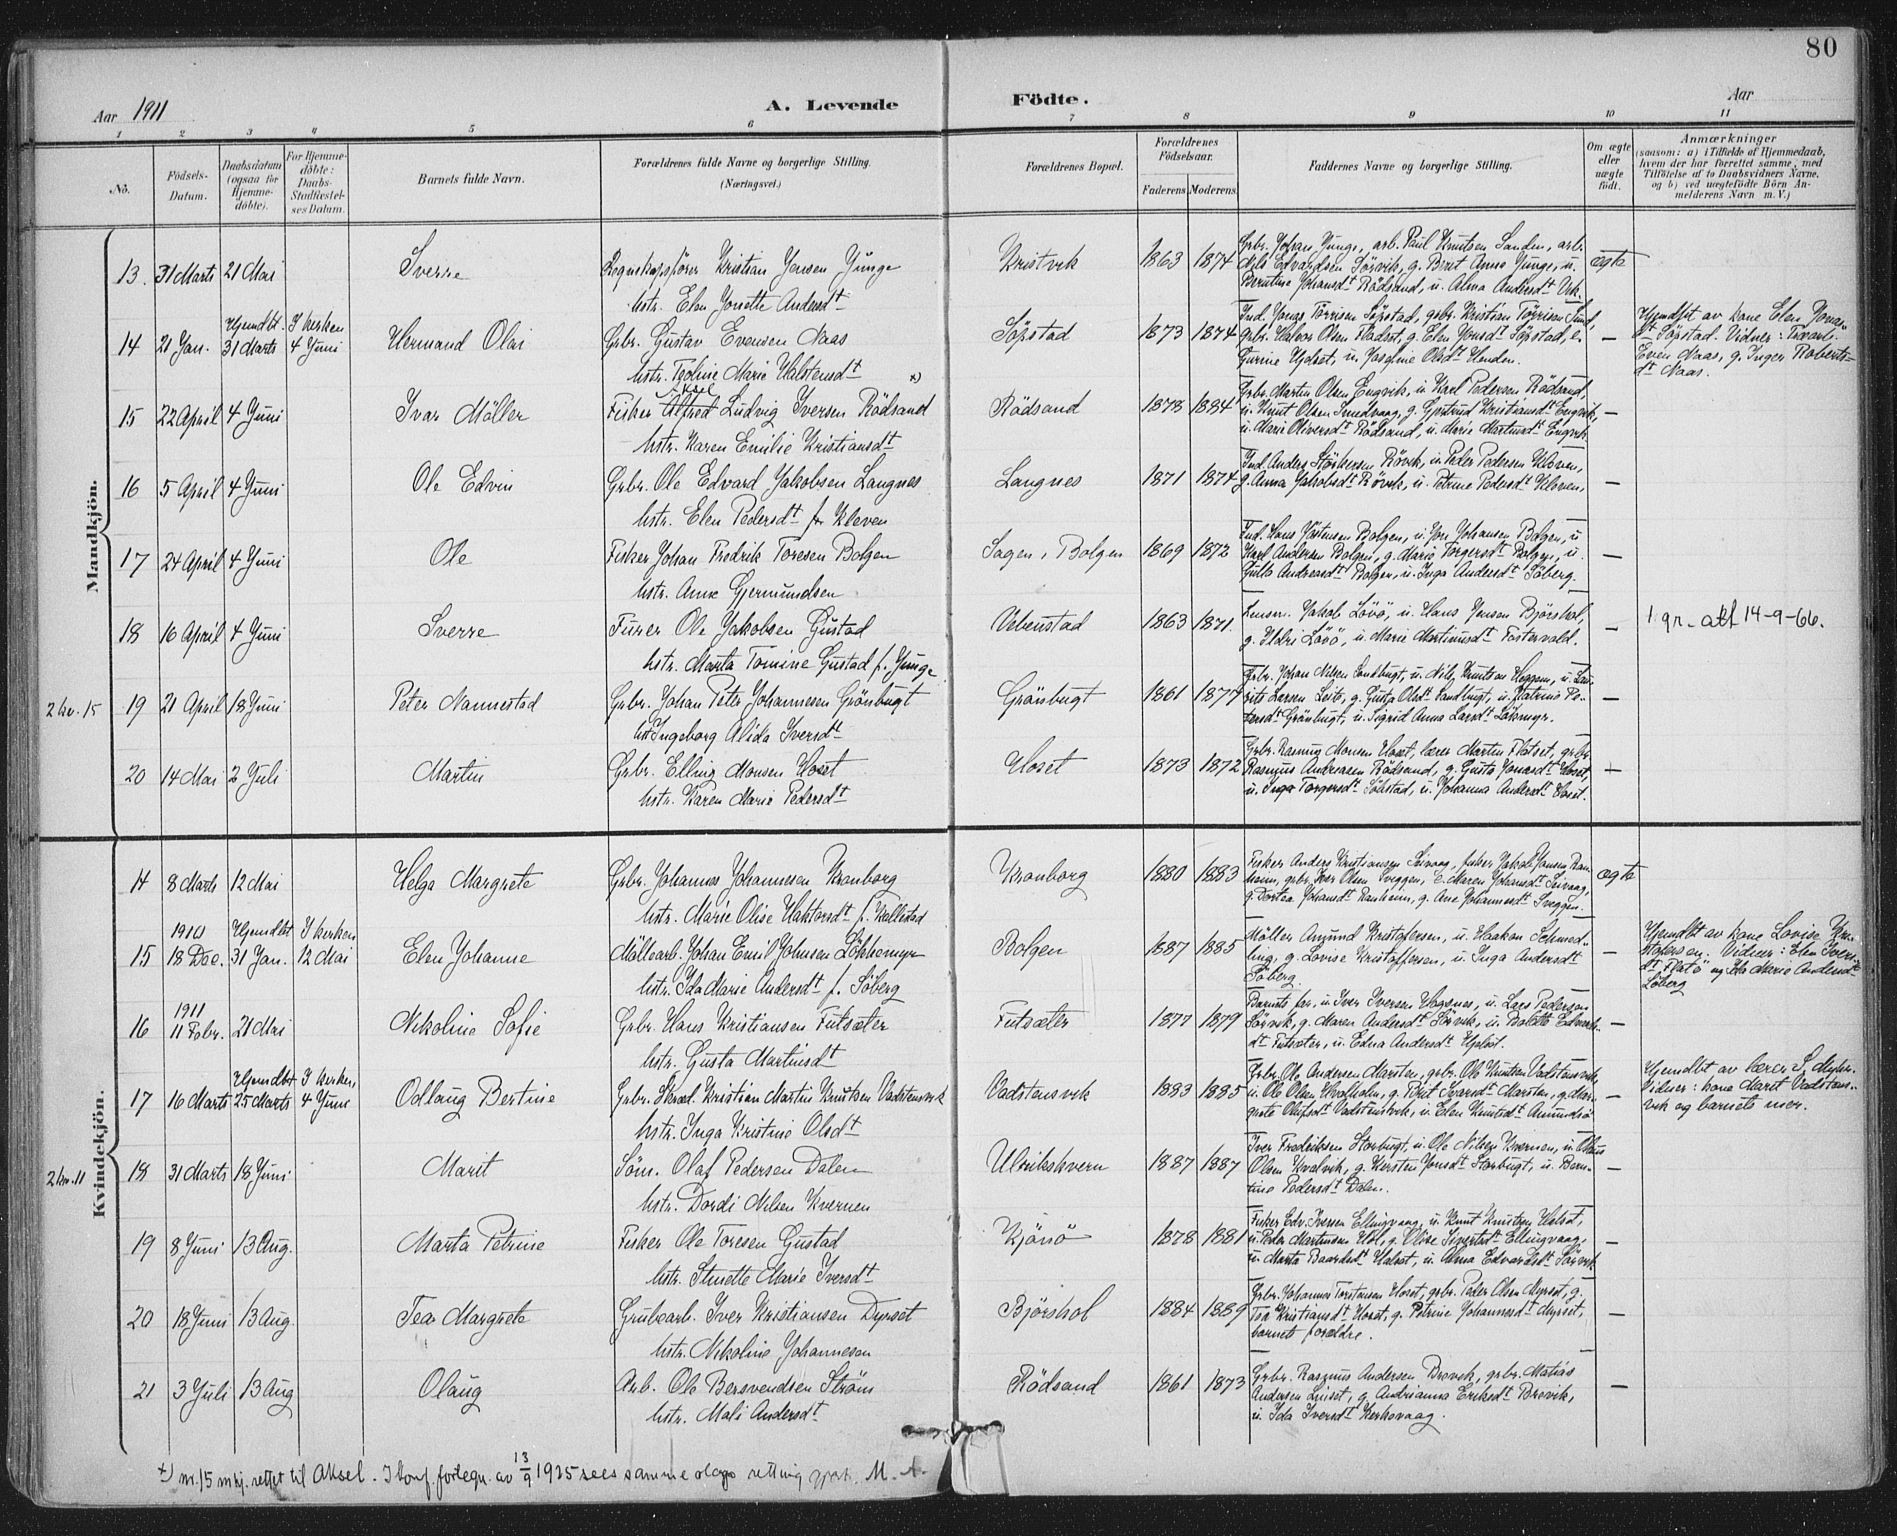 80
Aar 1911
A. Levende Födte.
Aar
1 2 3 4 5 6 7 8 9 10 11
No.
Födsels-Datum.
Daabsdatum (ogsaa for Hjemme-döbte).
For Hjemme-döbte: Daabs-Stadfæstel-ses Datum.
Barnets fulde Navn.
Forældrenes fulde Navne og borgerlige Stilling.
(Næringsvei.)
Forældrenes Bopæl.
Forældrenes Födselsaar.
Faderens. Moderens.
Faddernes Navne og borgerlige Stilling.
Om ægte eller uægte födt.
Anmærkninger
(saasom: a) i Tilfælde af Hjemmedaab,
hvem der har forrettet samme, med
Tilföielse af to Daabsvidners Navne.
og b) ved uægtefödte Börn An-
melderens Navn m.V.)
Mandkjön.
13. 31 Marts 21 Mai Sverre
Regnskapsförer Kristian Jensen Junge
hstr. Elen Jonette Andersdt
Kristvik 1863 1874
Grbr. Johan Junge, arb. Paul Knutsen Sanden, arb.
Nils Edvardsen Sörvik, g. Brit Anna Junge, u.
Berntine Johansdt Rödsand, u. Alma Andersdt Vik.
ægte
14 21 Jan. Hjemdbt. 31 Marts I kirken 4 Juni Hermand Olai
Grbr. Gustav Evensen Naas
hstr. Marie Halstensdt
1873 1874
Hjemdbt av kone Elen Jonas-
dt . Vidner:
Even Naas, g. Inger Roberts-
dt Naas.
15 22 April 4 Juni Ivar Möller
Fisker Alfred Aksel Ludvig Iversen Rödsand x)
hstr. Karen Emilie Kristiansdt
Rödsand 1878 1884
Grbr. Martin Olsen Engvik, u. Karl Pedersen Rödsand,
u. Knut Olsen Smedvaag, g. Gjertrud Kristiansdt Engvik,
u. Marie Oliversdt Rödsand, u. Marie Martinsdt Engvik.
16 5 April 4 Juni Ole Edvin
Grbr. Ole Edvard Jakobsen Langnes
hstr. Elen Pedersdt f. Kleven
Langnes 1871 1874
g. Anna Jakobsdt Rövik, u. Petrine Pedersdt Kleven,
17 24 April 4 Juni Ole
Fisker Johan Fredrik Toresen Bolgen
hstr. Anne Gjermundsen
Sagen, Bolgen 1869 1872
Karl Andersen Bolgen, g. Marie Torgersdt Bolgen, u.
Gulla Andreasdt Bolgen, u. Inga Andersdt Söberg.
18 16 April 4 Juni Sverre
Furer Ole Jakobsen Gustad
hstr. Marta Tomine Gustad f. Junge
Vebenstad 1863 1871
Jakob Lövö, u. Hans Jensen Björshol,
g. Lövö, u. Marie Martinusdt Fostervold.
1 gr. att 14-9-66.
2 kv. 15 19 21 April 18 Juni Peter Nannestad
Grbr. Johan Peter Johannesen Grönbugt
h. Ingeborg Alida Iversdt
Grönbugt 1861 1877
Grbr. Johan Nilsen Sandbugt, u. Nils Knutsen Heggem, u. Lau-
rits Larsen Leite, g. Gusta Olsdt Sandbugt, u. Katrine Pe-
tersdt Grönbugt, u. Sigrid Anna Larsdt Lökmyr.
20 14 Mai 2 Juli Martin
Grbr. Elling Monsen Hoset
hstr. Karen Marie Pedersdt
Hoset 1873 1872
Grbr. Rasmus Monsen Hoset, lærer Martin Flatset, grbr.
Rasmus Andreasen Rödsand, g. Gusta Jonasdt Hoset,
u. Inga Torgersdt , u. Johanna Andersdt Hoset.
Kvindekjön.
14 8 Marts 12 Mai Helga Margrete
Grbr. Johannes Johannesen Kronborg
hstr. Marie Olise f. Kallestad
Kronborg 1880 1883
Fisker Anders Kristiansen , fisker Jakob Jonsen Ran-
heim, grbr. Iver Olsen Sveggen, e. Maren Johansdt ,
g. Dortea Johansdt Ranheim, g. Ane Johannesdt Sveggen.
ægte
1910
15 18 Dec. Hjemdbt 31 Jan. I kirken 12 Mai Elen Johanne
Möllearb. Johan Emil Johnsen Lökkemyr
hstr. Ida Marie Andersdt f. Söberg
Bolgen 1887 1885
Möller Amund Kristofersen, u. Haakon Schmed-
ling, g. Lovise Kristoffersen, u. Inga Andersdt
Söberg.
Hjemdbt av kone Lovise Kri-
stofersen. Vidner: Elen Ivers-
dt Flatö og Ida Marie Andersdt
Söberg
1911
16 11 Febr. 21 Mai Nikoline Sofie
Grbr. Hans Kristiansen Futsæter
hstr. Gusta Martinsdt
Futsæter 1877 1879
Barnets far, u. Iver Iversen Hogsnes, u. Lars Pedersen
Sörvik, g. Maren Andersdt Sörvik, u. Bolette Edvards-
dt Futsæter, u. Edna Andersdt .
17 16 Marts Hjemdbt 25 Marts I kirken 4 Juni Odlaug Bertine
Grbr. Skræd. Kristian Martin Knutsen Vadstensvik
hstr. Inga Kristine Olsdt
Vadstensvik 1883 1885
Grbr. Ole Andersen Marsten, grbr. Ole Knutsen Vadstensvik,
u. Ole Olsen Hvalholm, g. Brit Ivarsdt Marsten, g. Mar-
grete Olufsdt Vadstensvik, u. Elen Knutsdt Amundsö
Hjemdbt av lærer S. Myhr.
Vidner: kone Marit Vadstens-
vik og barnets mor.
2 kv. 11 18 31 Marts 18 Juni Marit
Söm. Olaf Pedersen Dalen
hstr. Dordi Nilsen Kvernen
Ulrikshvern 1887 1887
Iver Fredriksen Storbugt, u. Ole Nilsen Kvernen, u. Olaus
Olsen Kvalvik, g. Kersten Jonsdt Storbugt, u. Bern-
tine Pedersdt Dalen.
19 8 Juni 13 Aug. Marta Petrine
Fisker Ole Toresen Gustad
hstr. Marie Iversdt
Kjönö 1878 1881
Fisker Edv. Iversen Ellingvaag, u. Knut Knutsen Halset,
u. Peder Martinsen Hol, g. Olise Sivertsdt Ellingvaag,
u. Marta Baardsdt Halset, u. Alma Edvardsdt Sörvik
20 18 Juni 13 Aug. Tea Margrete
Grubearb. Iver Kristiansen Dyrset
hstr. Nikoline Johannesen
Björshol 1884 1889
Grbr. Johannes Torstensen Hoset, grbr. Peder Olsen Myrset, g.
Tea Kristiansdt Hoset, g. Petrine Johannesdt Myrset,
barnets forældre.
21 3 Juli 13 Aug Olaug
Arb. Ole Bersvendsen Ström
hstr. Mali Andersdt
Rödsand 1861 1873
Grbr. Rasmus Andersen Brevik, grbr. Matias
Andersen Linset, g. Andrianna Eriksdt Brevik,
u. Ida Iversdt Kirkevaag.
x) nr. 15 mkj. rettet til Aksel. I konf. forlegn. av 13/9 1925 sees samme slags retting M. A.